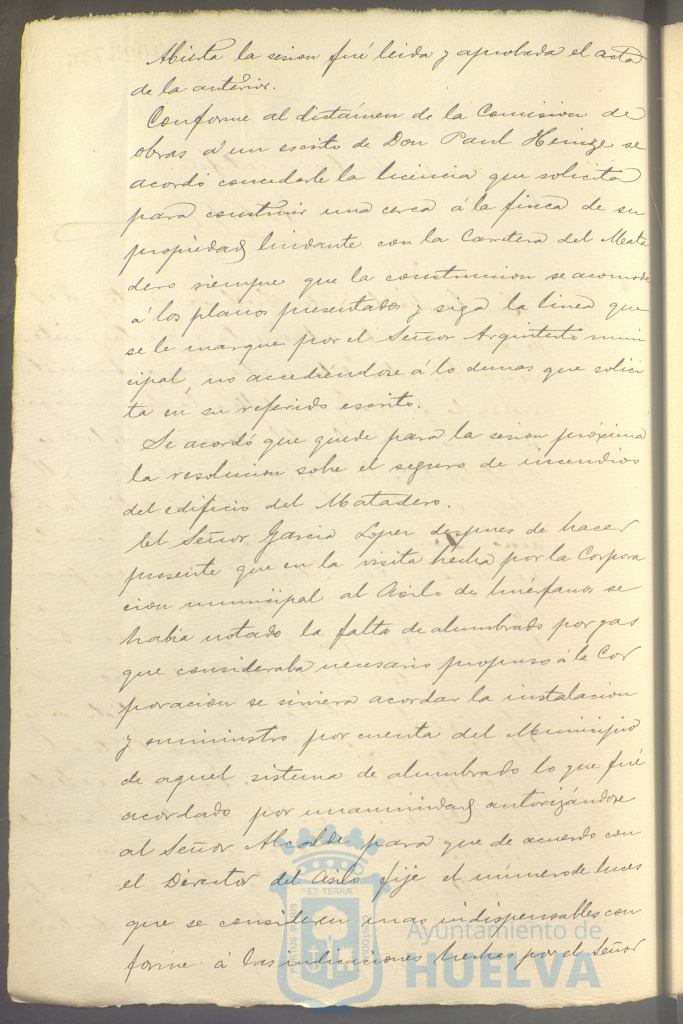 Abierta la sesion fué leida y aprobada el acta
de la anterior.
Conforme al dictámen de la Comision de
obras á un escrito de Don Paul Heinze se
acordó concederle la licencia que solicita
para construir una cerca á la finca de su
propiedad lindante con la Carretera del Mata
dero siempre que la construccion se acomode
á los planos presentados y siga la linea que
se le marque por el Señor Arquitecto muni
cipal, no accediéndose á lo demas que solici
ta en su referido escrito.
Se acordó que quede para la sesion próxima
la resolucion sobre el seguro de incendios
del edificio del Matadero.
El Señor Garcia Lopez despues de hacer
presente que en la visita hecha por la Corpora
cion municipal al Asilo de huérfanos se
habia notado la falta de alumbrado por gas
que consideraba necesario propuso á la Cor
poracion se sirviera acordar la instalacion
y suministro por cuenta del Municipio
de aquel sistema de alumbrado lo que fué
acordado por unanimidad autorizándose
al Señor Alcalde para que de acuerdo con
el Director del Asilo fije el número de luces
que se consideren mas indispensables con
forme á las indicaciones hechas por el Señor
ET TERRÆ
Ayuntamiento de
HUELVA